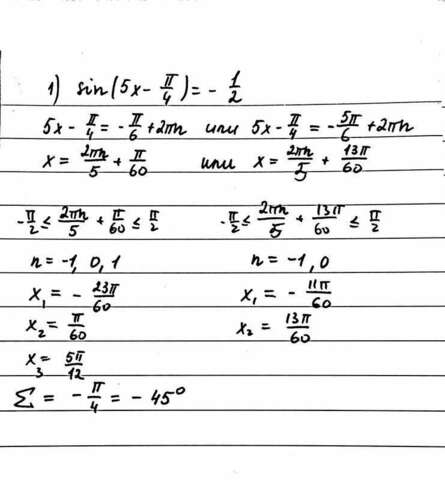 1) sin(5x - π/4) = - 1/2
5x - π/4 = - π/6 + 2πn или 5x - π/4 = - 5π/6 + 2πn
x = 2πn/5 + π/60 или x = 2πn/5 + 13π/60
- π/2 ≤ 2πn/5 + π/60 ≤ π/2 - π/2 ≤ 2πn/5 + 13π/60 ≤ π/2
n = -1, 0, 1 n = -1, 0
x₁ = - 23π/60 x₁ = - 11π/60
x₂ = π/60 x₂ = 13π/60
x₃ = 5π/12
Σ = - π/4 = - 45°